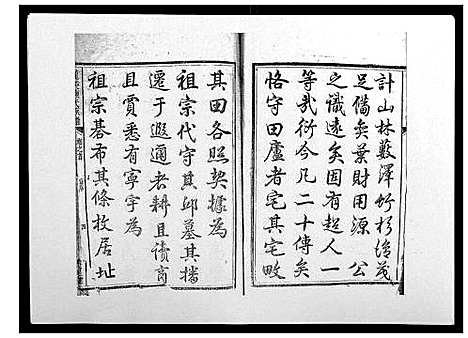 計山林藪澤竹杉絵茂
足備矣葉財用源 公
之識遠矣固有起人一
等哉衍今凡二十傳矣
恪守田廬者宅其宅畋
其田各照契據為
祖宗代守其邱墓其播
遷于遐邇者耕且讀商
且賈悉有寧宇為
祖宗碁布其條枚居址